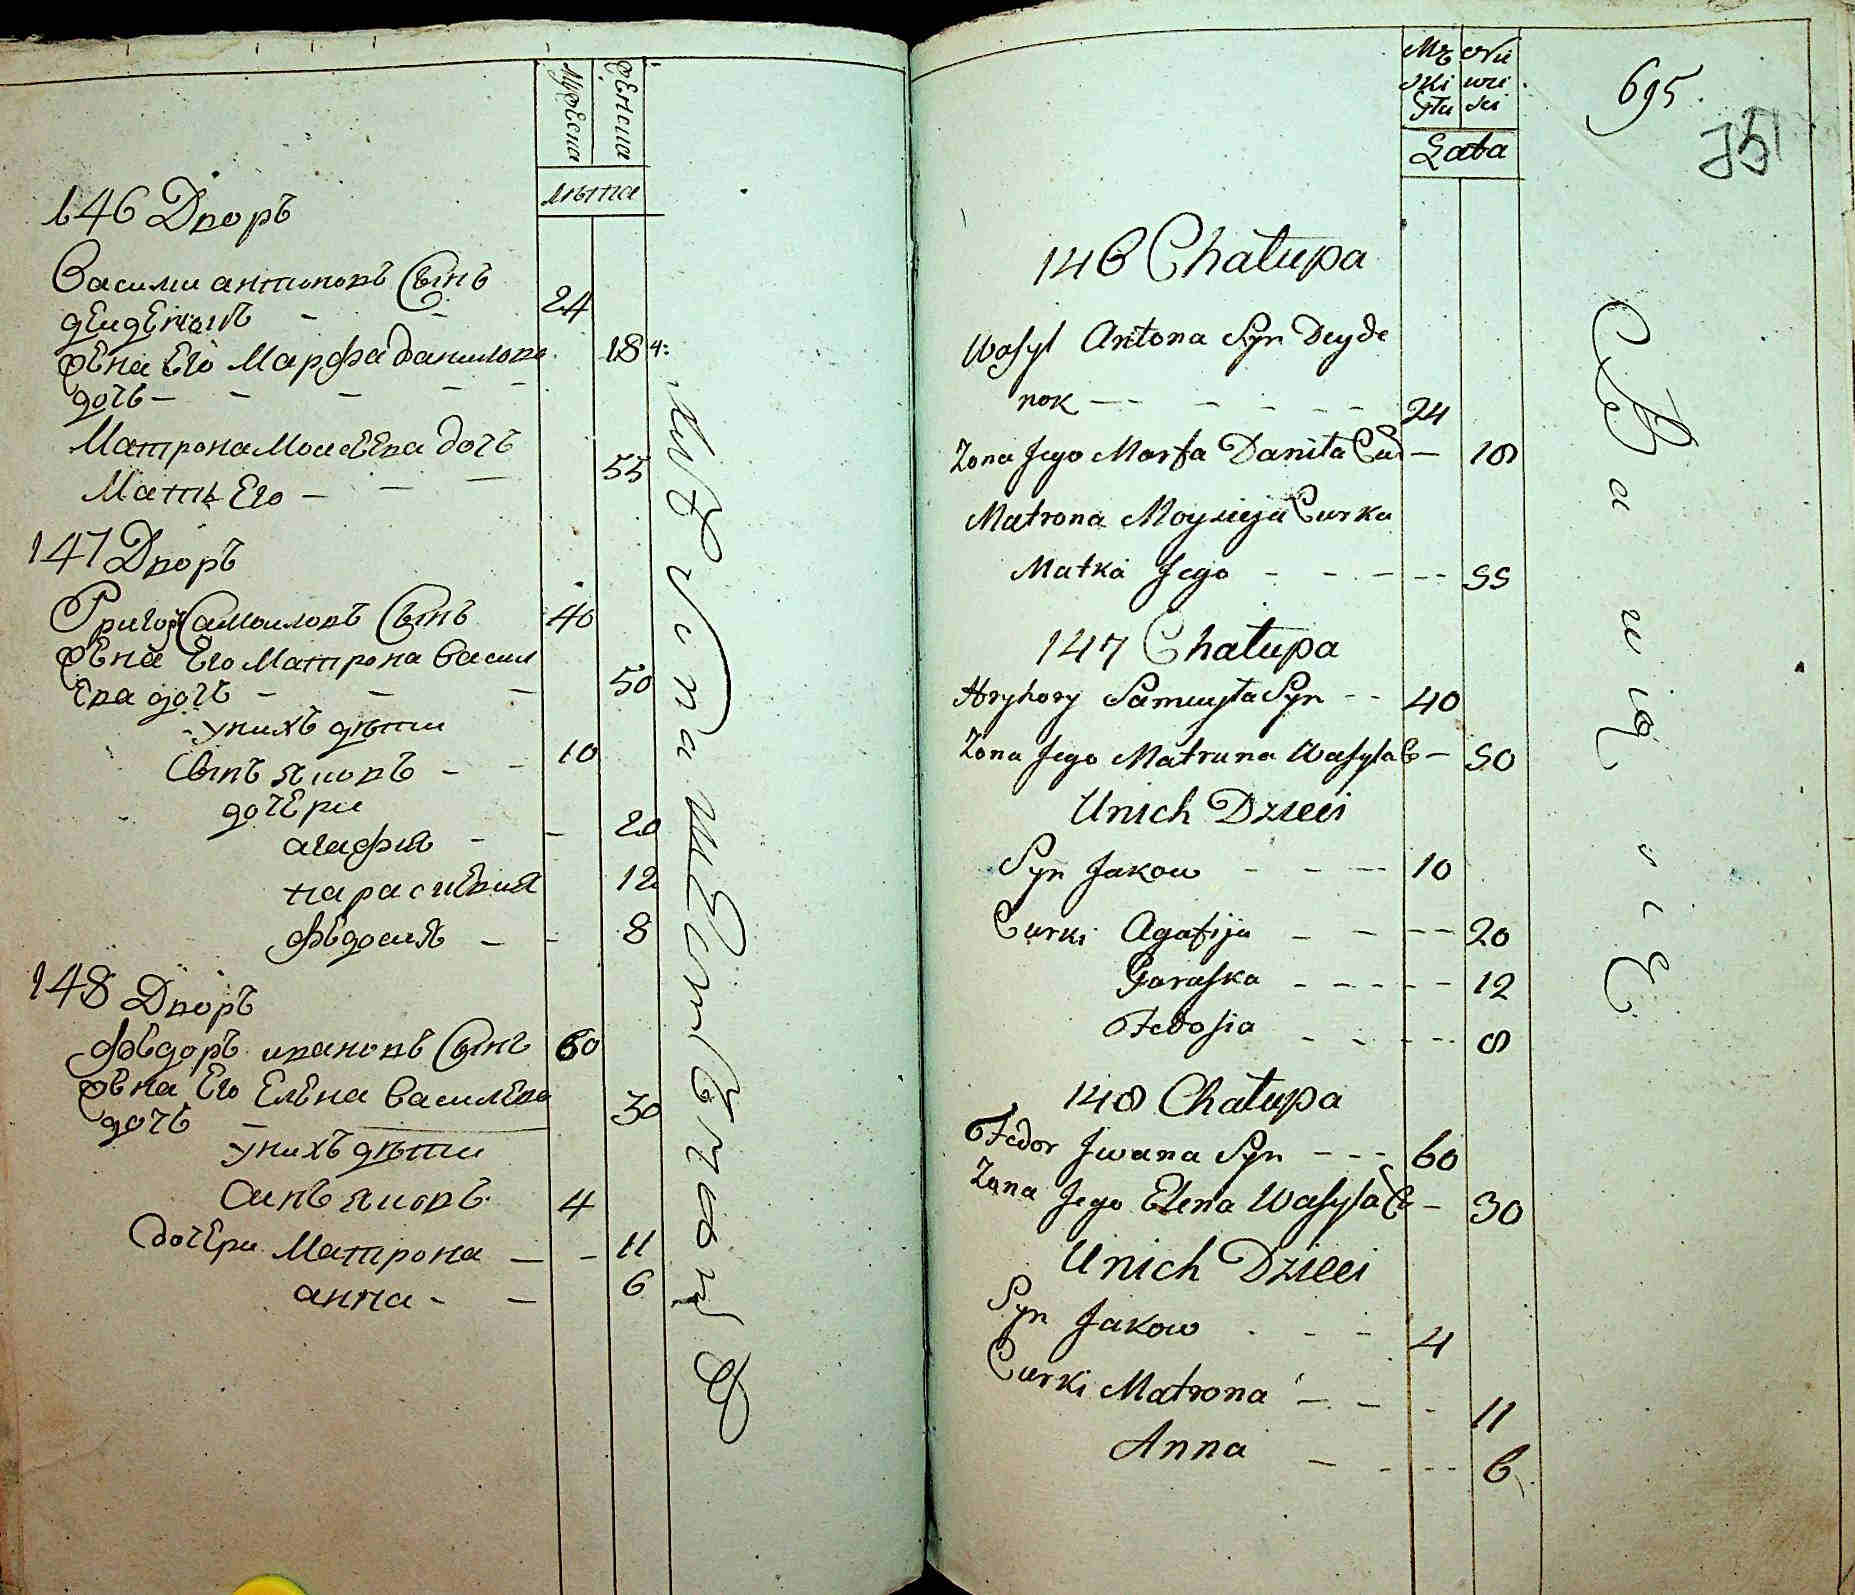 мужеска
женска
лѣта
146 Дворъ
Василий антоновъ Сынъ
дейденокъ - - 24
жена Его Марфа данилова 18
дочь - - - - -
Матрона Моисеева дочь
Мать Его - - - 55
147 Дворъ
Григорей Самоиловъ Сынъ 40
жена Его Матрона васил
ева дочь - - - 50
у нихъ дѣти
Сынъ яковъ - - 10
дочери
агафия - - 20
параскевия 12
федосия - - 8
148 Дворъ
федоръ ивановъ Сынъ 60
жена Его Елена василева
дочь - 30
у нихъ дѣти
Синъ яковъ 4
дочери Матрона - - 11
анна - - 6
Męz Nie
ski wie
Płci ski
Lata
695
751
146 Chałupa
Wasyl Antona Syn Deyde
nok - - - - - - 24
Zona Jego Marfa Daniła Cur - 18
Matrona Moyzieja Curka
Matka Jego - - - - - 55
147 Chałupa
Hryhory Samuyła Syn - - 40
Zona Jego Matruna Wasyla C - 50
Unich Dzieci
Syn Jakow - - - - 10
Curki Agafija - - - - 20
Paraska - - - - - 12
Fedosia - - - - - 8
148 Chałupa
Fedor Jwana Syn - - - 60
Zona Jego Elena Wasyla C - 30
Unich Dzieci
Syn Jakow - - - 4
Curki Matrona - - - 11
Anna - - - - 6